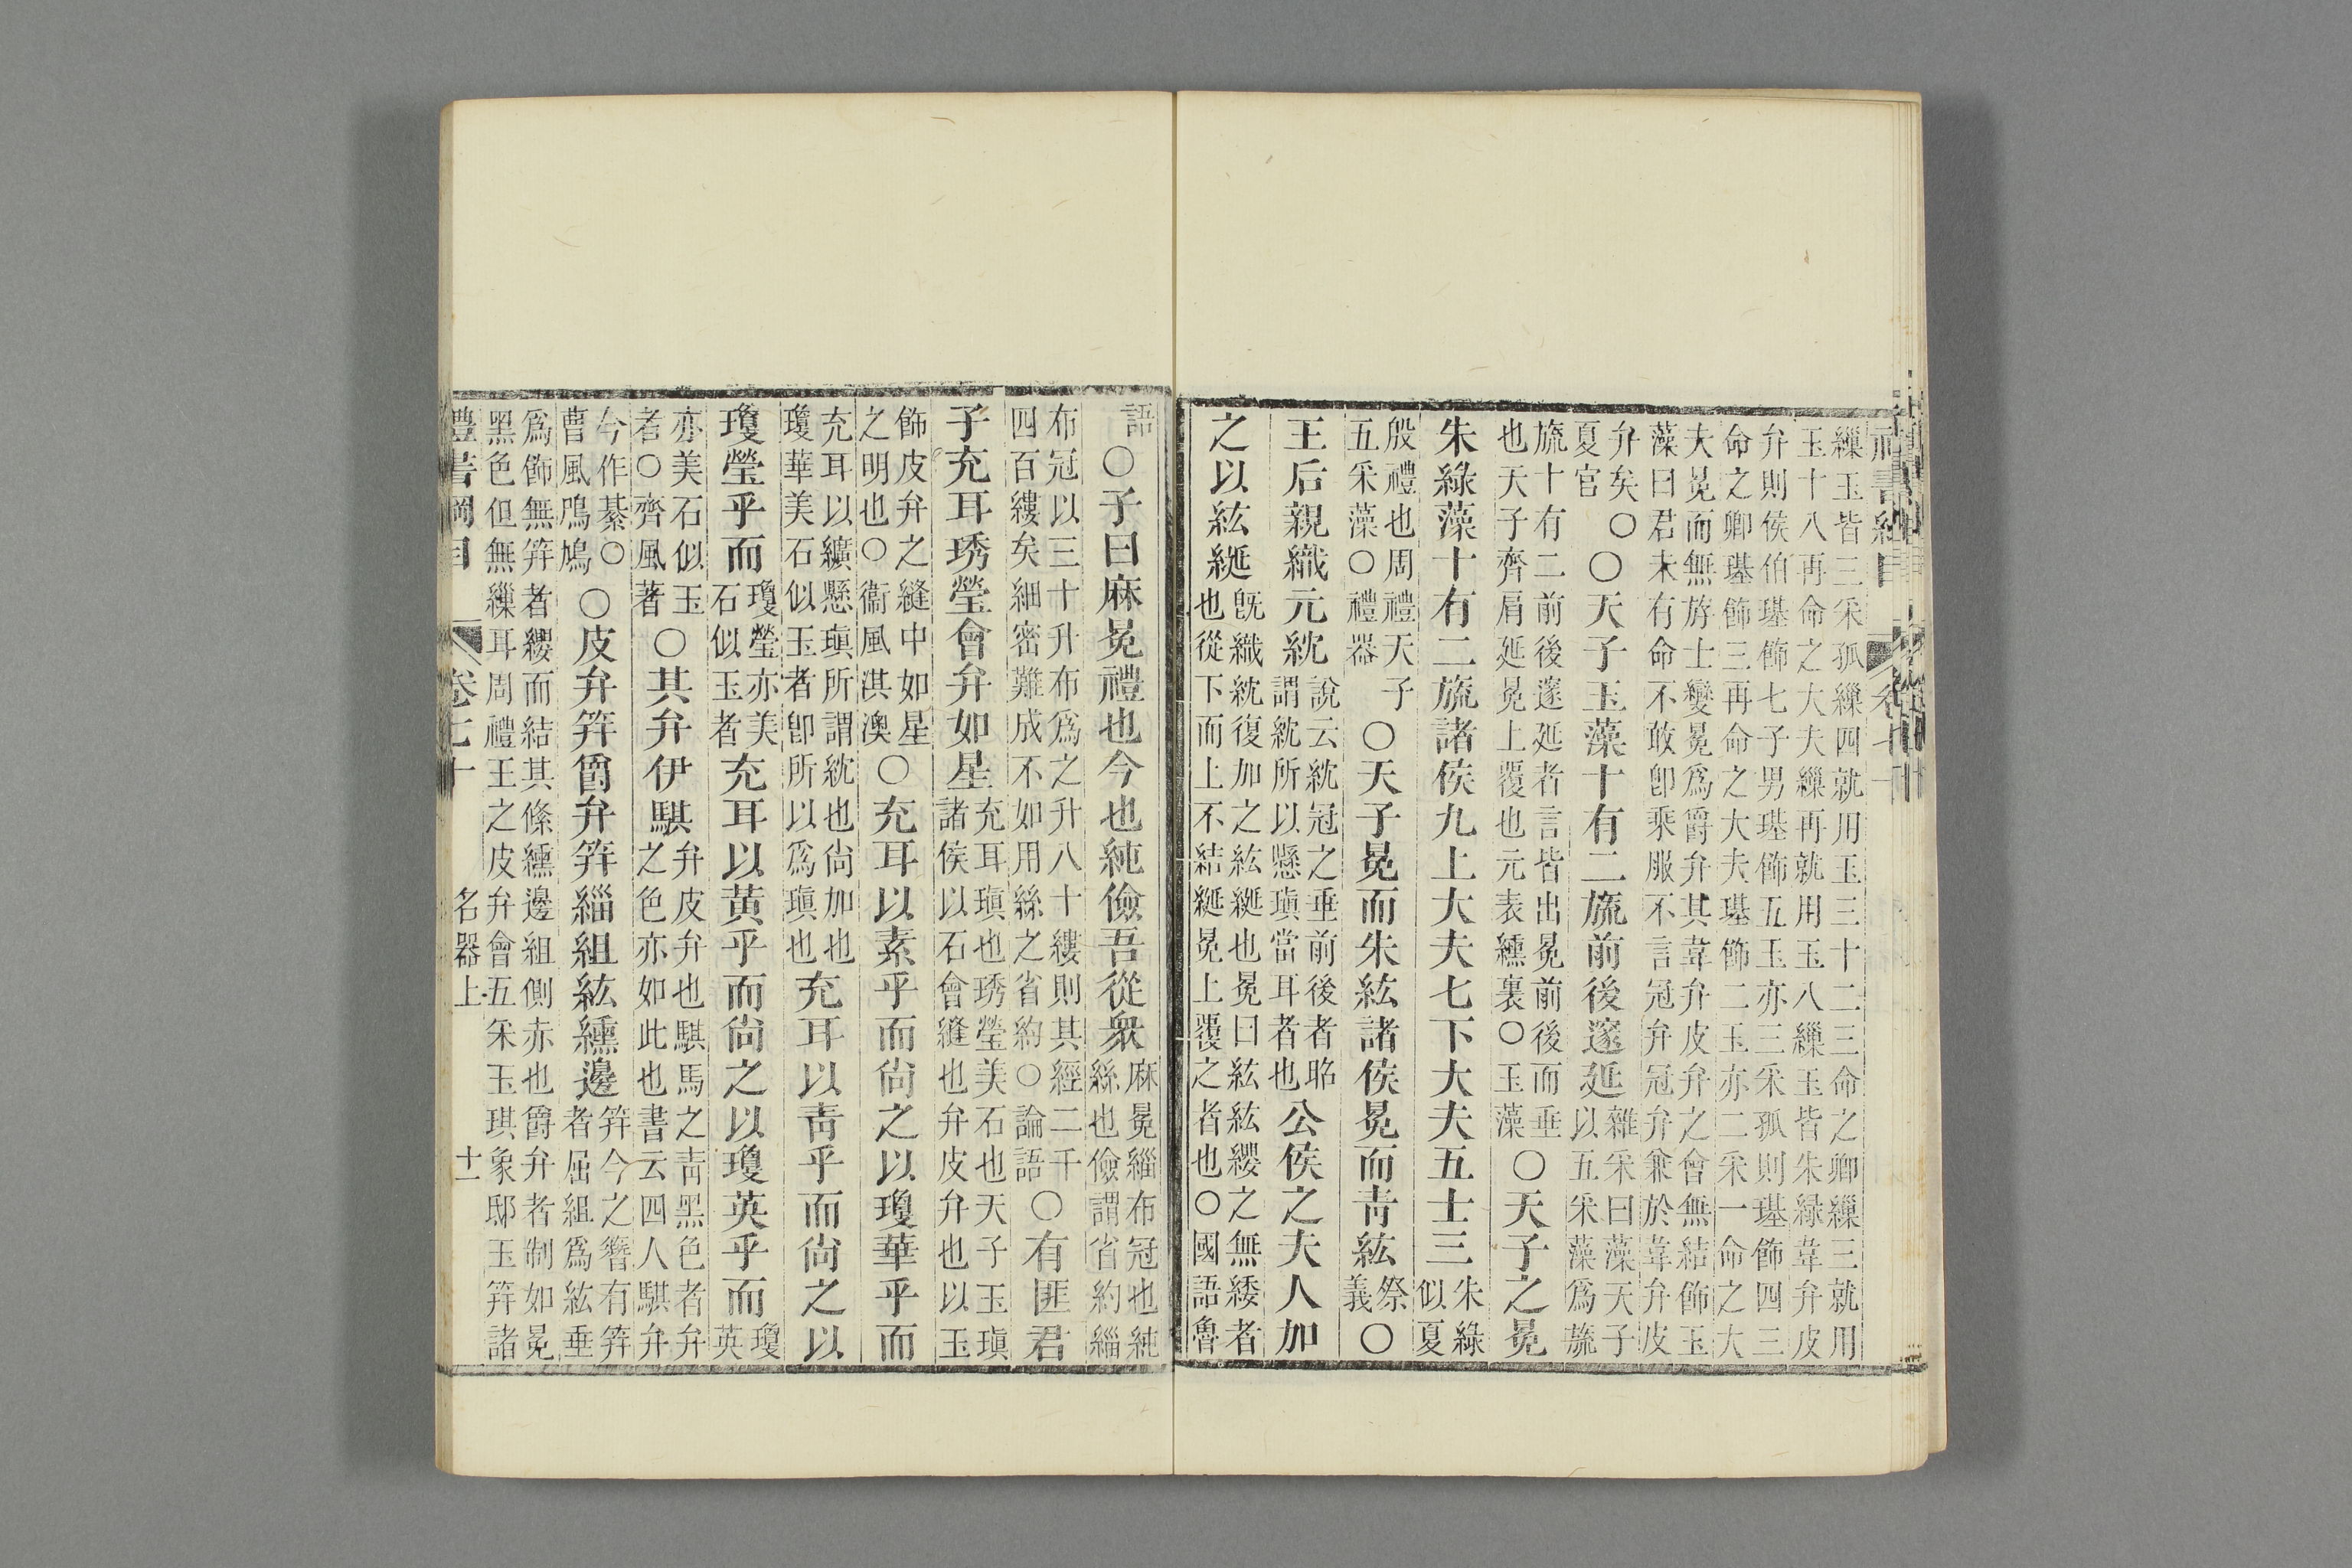 繅玉皆三采孤繅四就用玉三十二三命之卿繅三就用
玉十八再命之大夫繅再就用玉八繅玉皆朱緑韋弁皮
弁則侯伯璂飾七子男璂飾五玉亦三采孤則璂飾四三
命之卿璂飾三再命之大夫璂飾二玉亦二采一命之大
夫冕而無斿士變冕爲爵弁其韋弁皮弁之會無結飾玉
藻曰君未有命不敢卽乘服不言冠弁冠弁兼於韋弁皮
弁矣○夏官○天子玉藻十有二旒前後邃延雜采曰藻天子以五采藻爲旒
旒十有二前後邃延者言皆出冕前後而垂也天子齊肩延冕上覆也元表纁裏○玉藻○天子之冕
朱綠藻十有二旒諸侯九上大夫七下大夫五士三朱綠似夏
殷禮也周禮天子五采藻○禮器○天子冕而朱紘諸侯冕而靑紘祭義○
王后親織元紞說云紞冠之垂前後者昭謂紞所以懸瑱當耳者也公侯之夫人加
之以紘綖旣織紞復加之紘綖也冕曰紘紘纓之無緌者也從下而上不結綖冕上覆之者也○國語魯
語○子曰麻冕禮也今也純儉吾從衆麻冕緇布冠也純絲也儉謂省約緇
布冠以三十升布爲之升八十縷則其經二千四百縷矣細密難成不如用絲之省約○論語○有匪君
子充耳琇瑩會弁如星充耳瑱也琇瑩美石也天子玉瑱諸侯以石會縫也弁皮弁也以玉
飾皮弁之縫中如星之明也○衞風淇澳○充耳以素乎而尙之以瓊華乎而
充耳以纊懸瑱所謂紞也尙加也瓊華美石似玉者卽所以爲瑱也充耳以靑乎而尙之以
瓊瑩乎而瓊瑩亦美石似玉者充耳以黃乎而尙之以瓊英乎而瓊英
亦美石似玉者○齊風著○其弁伊騏弁皮弁也騏馬之靑黑色者弁之色亦如此也書云四人騏弁
今作綦○曹風鳲鳩○皮弁笄爵弁笄緇組紘纁邊笄今之簪有笄者屈組爲紘垂
爲飾無笄者纓而結其絛纁邊組側赤也爵弁者制如冕
黑色但無繅耳周禮王之皮弁會五采玉琪象邸玉笄諸
禮書綱目 卷七十 名器上 十一